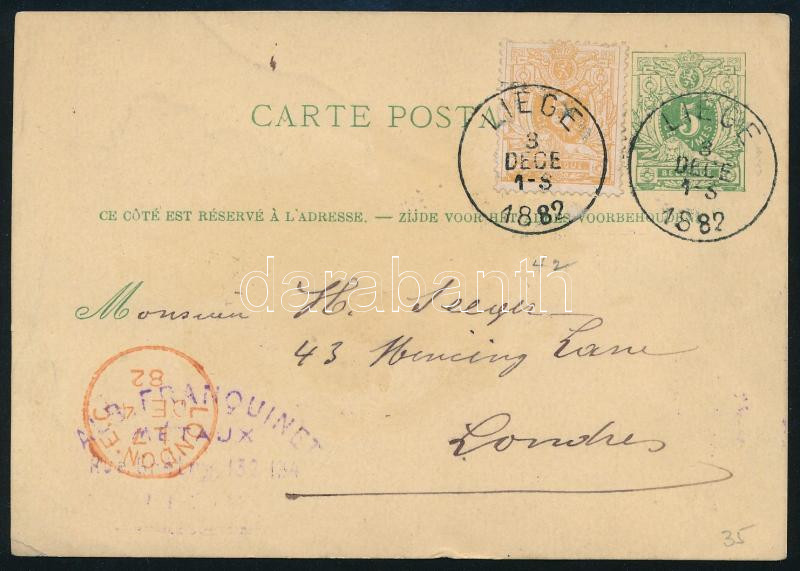 CARTE POSTA
LIEGE
3
DECE
1-S
1882
LIEGE
3
DECE
1-S
1882
5
CE CÔTÉ EST RÉSERVÉ À L'ADRESSE. — ZIJDE VOOR HET ADRES VOORBEHOUDEN.
42
darabanth
Monsieur H. Seeger
43 Mincing Lane
Londres
LONDON. E.C
DE 4
82
FRANQUINET
METAUX
132 134
35